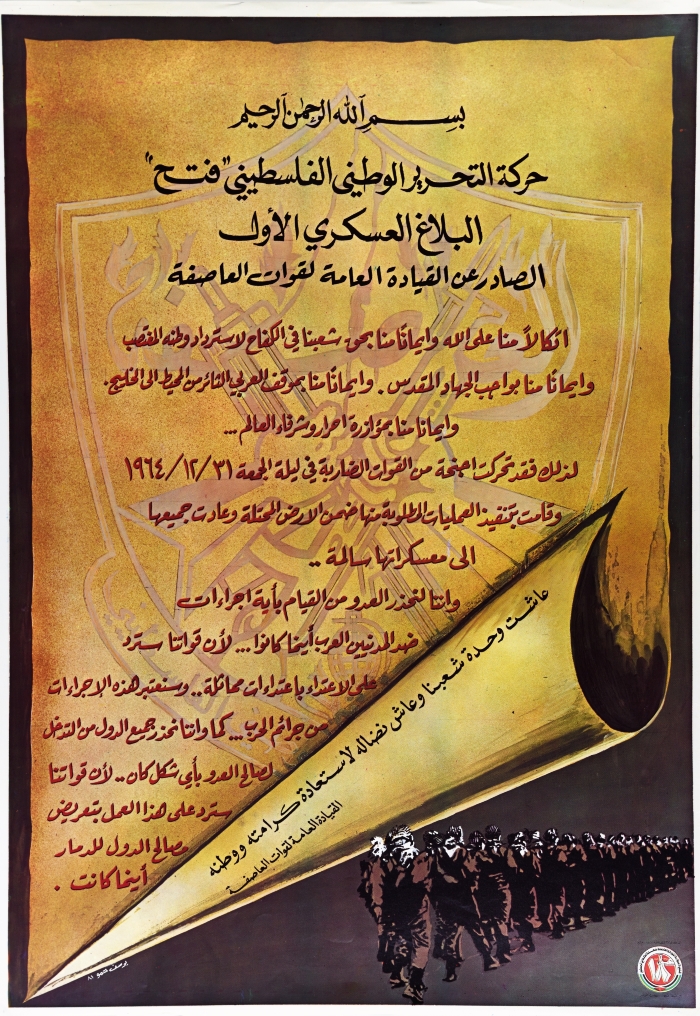 بسم الله الرحمن الرحيم
حركة التحرير الوطني الفلسطيني "فتح"
البلاغ العسكري الأول
الصادر عن القيادة العامة لقوات العاصفة
اتكالاً منا على الله وايمانًا منا بحق شعبنا في الكفاح لاسترداد وطنه المغتصب
وايمانًا منا بواجب الجهاد المقدس . وايمانًا منا بموقف العربي الثائر من المحيط الى الخليج .
وايمانا منا بمؤازرة احرار وشرفاء العالم ...
لذلك فقد تحركت اجنحة من القوات الضاربة في ليلة الجمعة ٣١/١٢/١٩٦٤
وقامت بتنفيذ العمليات المطلوبة منها ضمن الارض المحتلة وعادت جميعها
الى معسكراتها سالمة ..
واننا لنحذر العدو من القيام بأية اجراءات
ضد المدنيين العرب أينما كانوا ... لأن قواتنا سترد
على الاعتداء باعتداءات مماثلة .. وستعتبر هذه الاجراءات
من جرائم الحرب ... كما واننا نحذر جميع الدول من التدخل
لصالح العدو بأي شكل كان .. لأن قواتنا
سترد على هذا العمل بتعريض
مصالح الدول للدمار
أينما كانت .
عاشت وحدة شعبنا وعاش نضاله لاستعادة كرامته ووطنه
القيادة العامة لقوات العاصفة
يوسف حمو ٨٨